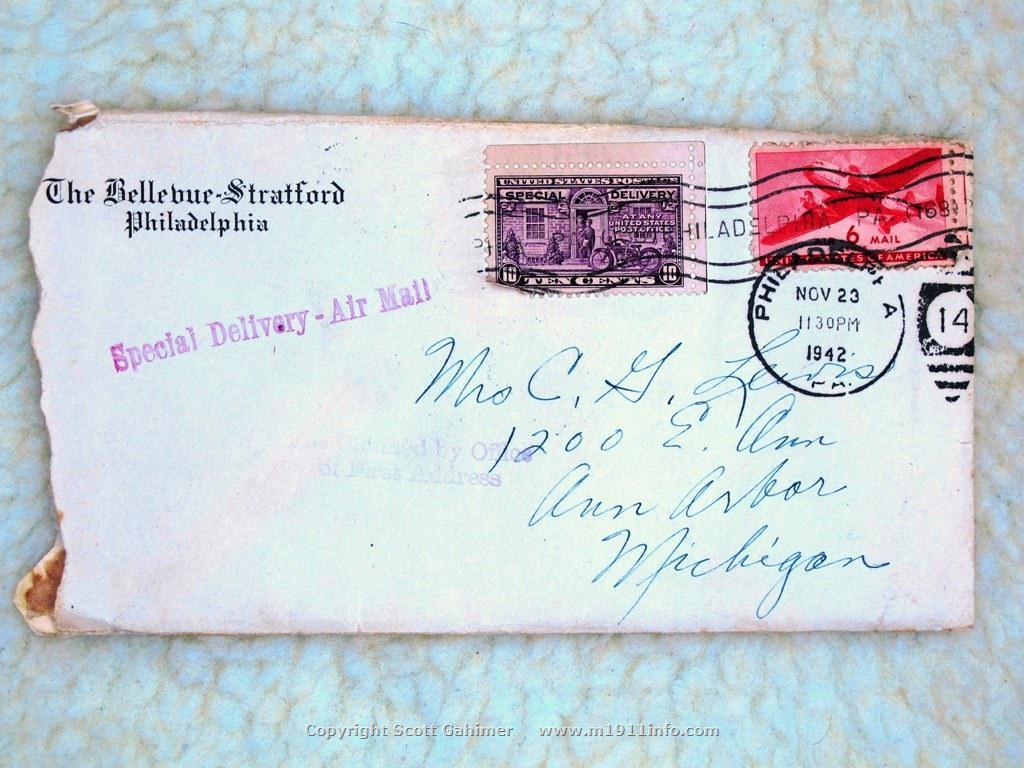 The Bellevue-Stratford
Philadelphia
UNITED STATES POSTAGE
SPECIAL DELIVERY
AT ANY
UNITED STATES
POST OFFICE
10 TEN CENTS 10
PHILADELPHIA PA. (168)
6 MAIL
UNITED STATES OF AMERICA
PHILADELPHIA
NOV 23
1130PM
1942
PA.
14
Special Delivery - Air Mail
Mrs C. G. Lewis
1200 E. Ann
Ann Arbor
Michigan
by Office
of First Address
Copyright Scott Gahimer www.m1911info.com